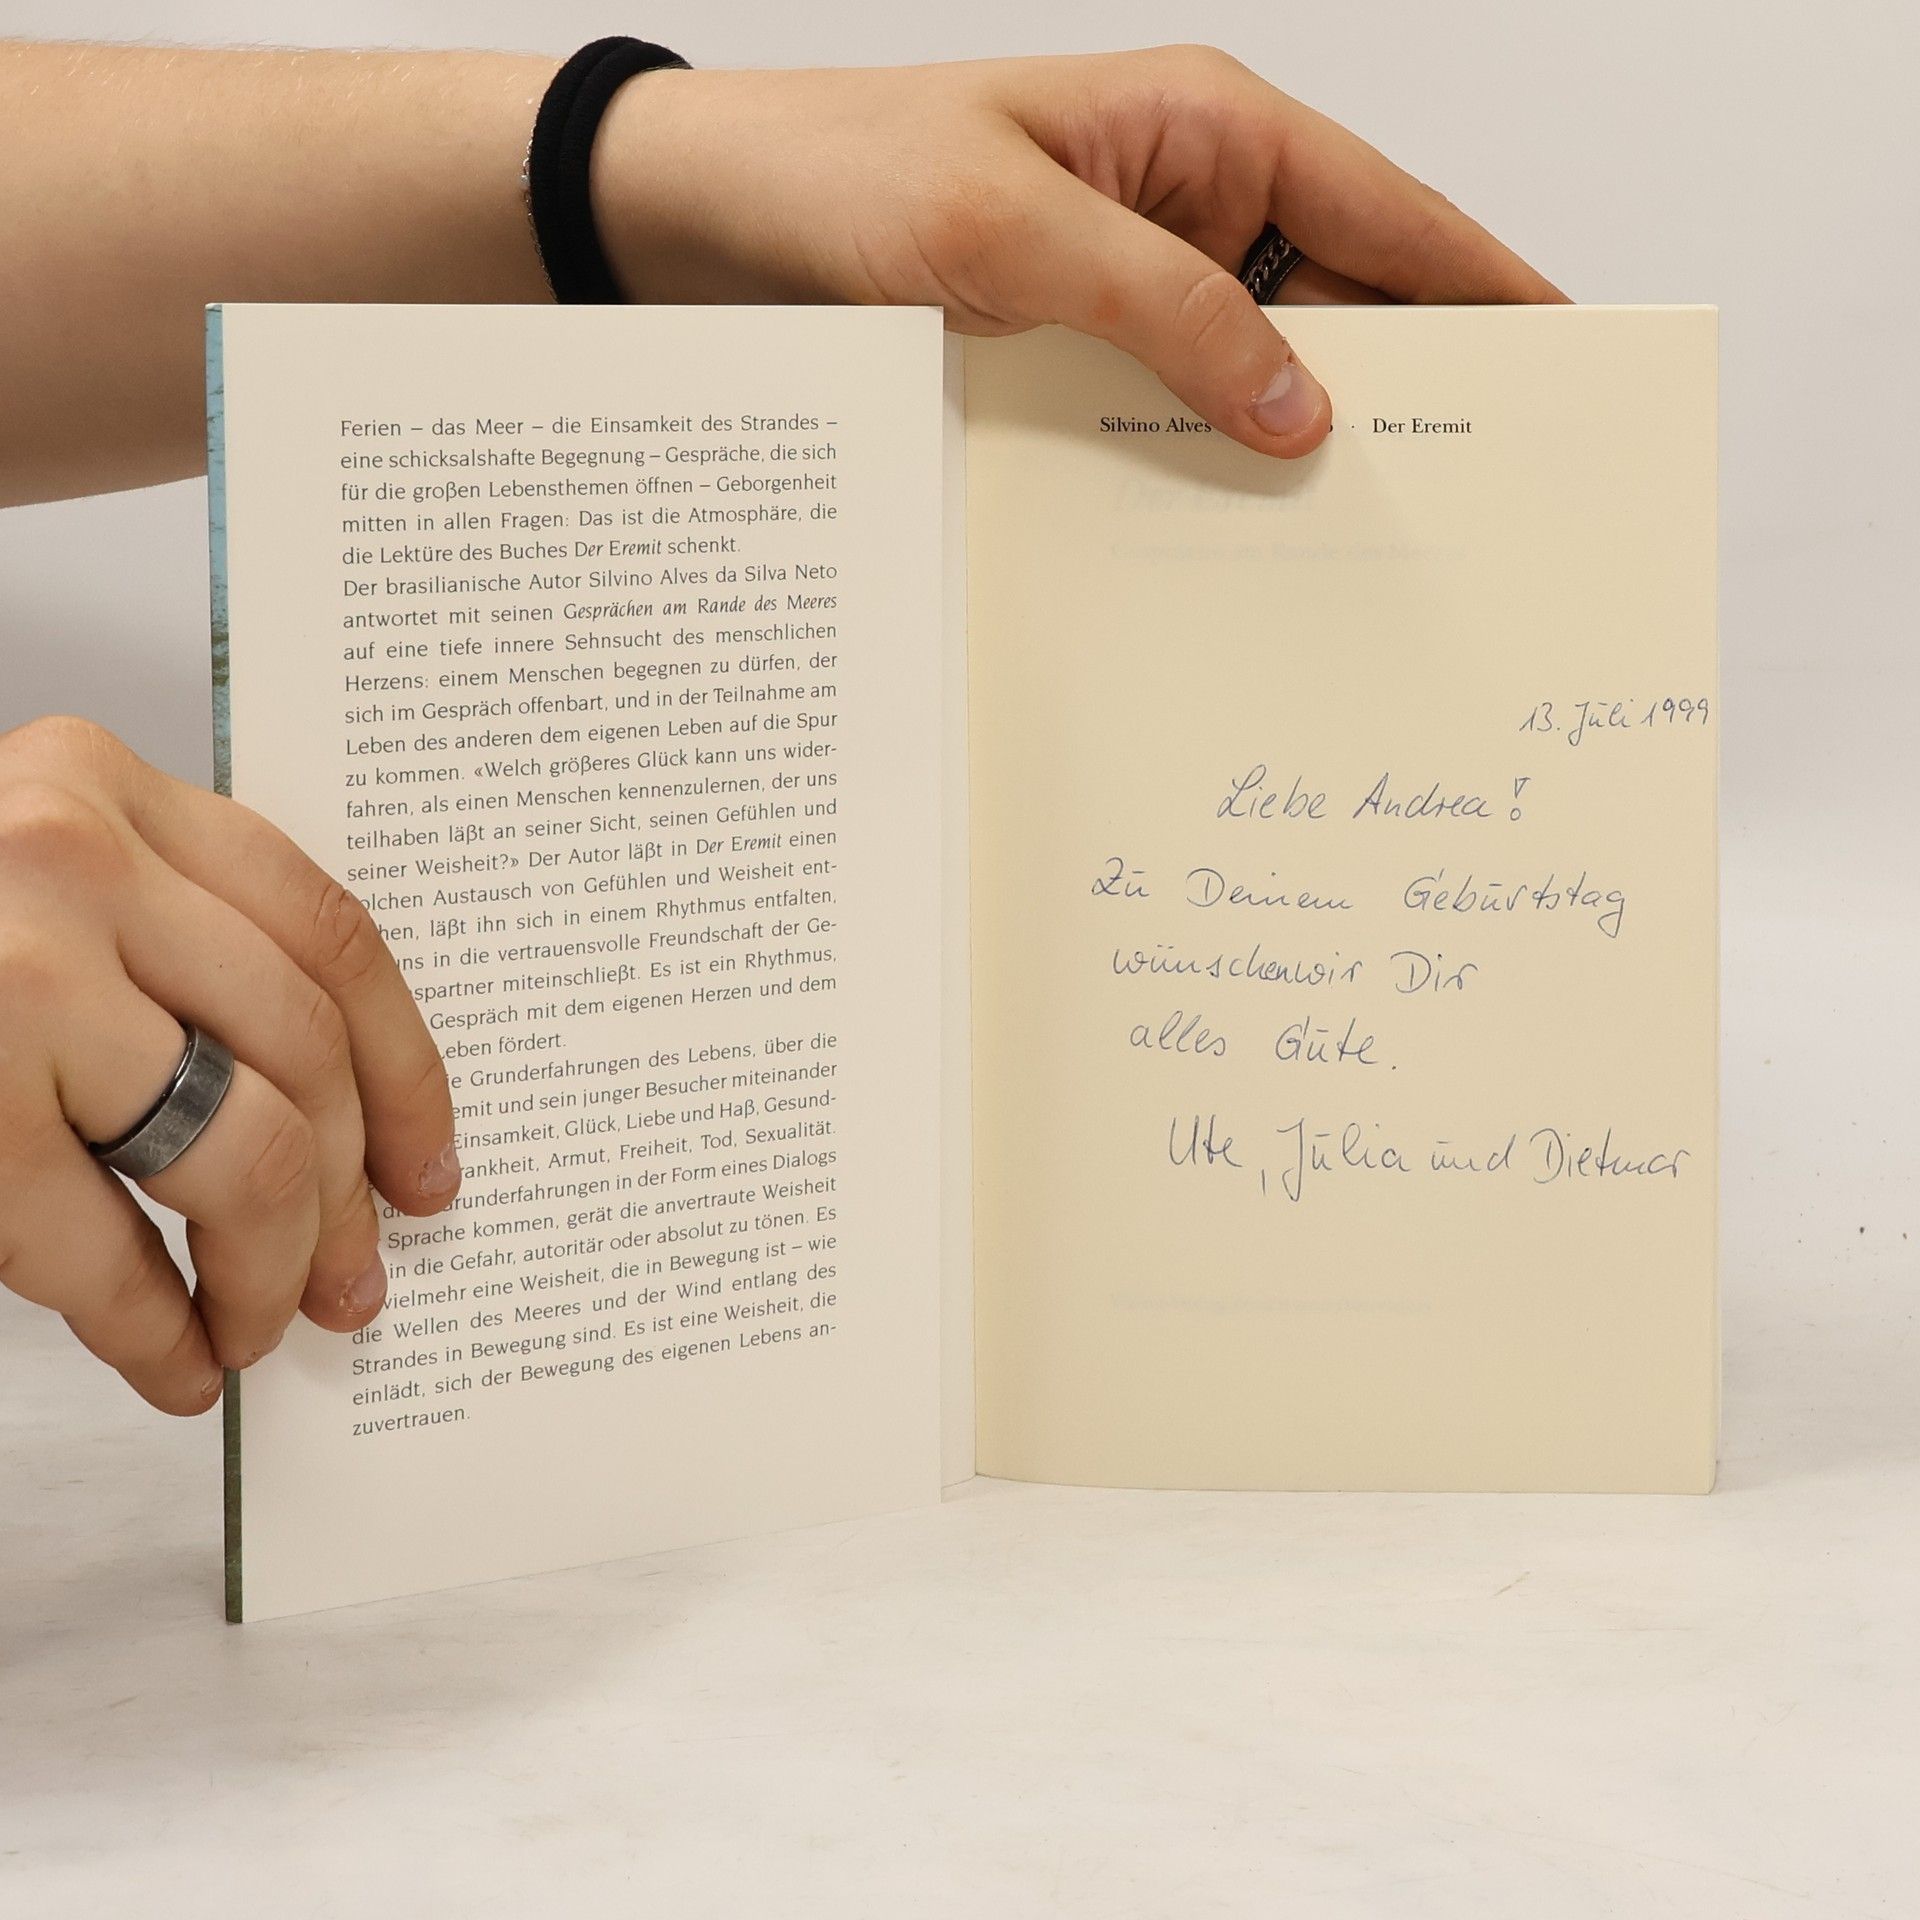 Ferien – das Meer – die Einsamkeit des Strandes –
eine schicksalshafte Begegnung – Gespräche, die sich
für die großen Lebensthemen öffnen – Geborgenheit
mitten in allen Fragen: Das ist die Atmosphäre, die
die Lektüre des Buches Der Eremit schenkt.
Der brasilianische Autor Silvino Alves da Silva Neto
antwortet mit seinen Gesprächen am Rande des Meeres
auf eine tiefe innere Sehnsucht des menschlichen
Herzens: einem Menschen begegnen zu dürfen, der
sich im Gespräch offenbart, und in der Teilnahme am
Leben des anderen dem eigenen Leben auf die Spur
zu kommen. «Welch größeres Glück kann uns wider-
fahren, als einen Menschen kennenzulernen, der uns
teilhaben läßt an seiner Sicht, seinen Gefühlen und
seiner Weisheit?» Der Autor läßt in Der Eremit einen
olchen Austausch von Gefühlen und Weisheit ent-
hen, läßt ihn sich in einem Rhythmus entfalten,
uns in die vertrauensvolle Freundschaft der Ge-
spartner miteinschließt. Es ist ein Rhythmus,
Gespräch mit dem eigenen Herzen und dem
Leben fördert.
ie Grunderfahrungen des Lebens, über die
emit und sein junger Besucher miteinander
Einsamkeit, Glück, Liebe und Haß, Gesund-
rankheit, Armut, Freiheit, Tod, Sexualität.
runderfahrungen in der Form eines Dialogs
Sprache kommen, gerät die anvertraute Weisheit
in die Gefahr, autoritär oder absolut zu tönen. Es
vielmehr eine Weisheit, die in Bewegung ist – wie
die Wellen des Meeres und der Wind entlang des
Strandes in Bewegung sind. Es ist eine Weisheit, die
einlädt, sich der Bewegung des eigenen Lebens an-
zuvertrauen.
Silvino Alves · Der Eremit
13. Juli 1999
Liebe Andrea!
Zu Deinem Geburtstag
wünschen wir Dir
alles Gute.
Ute, Julia und Dietmar